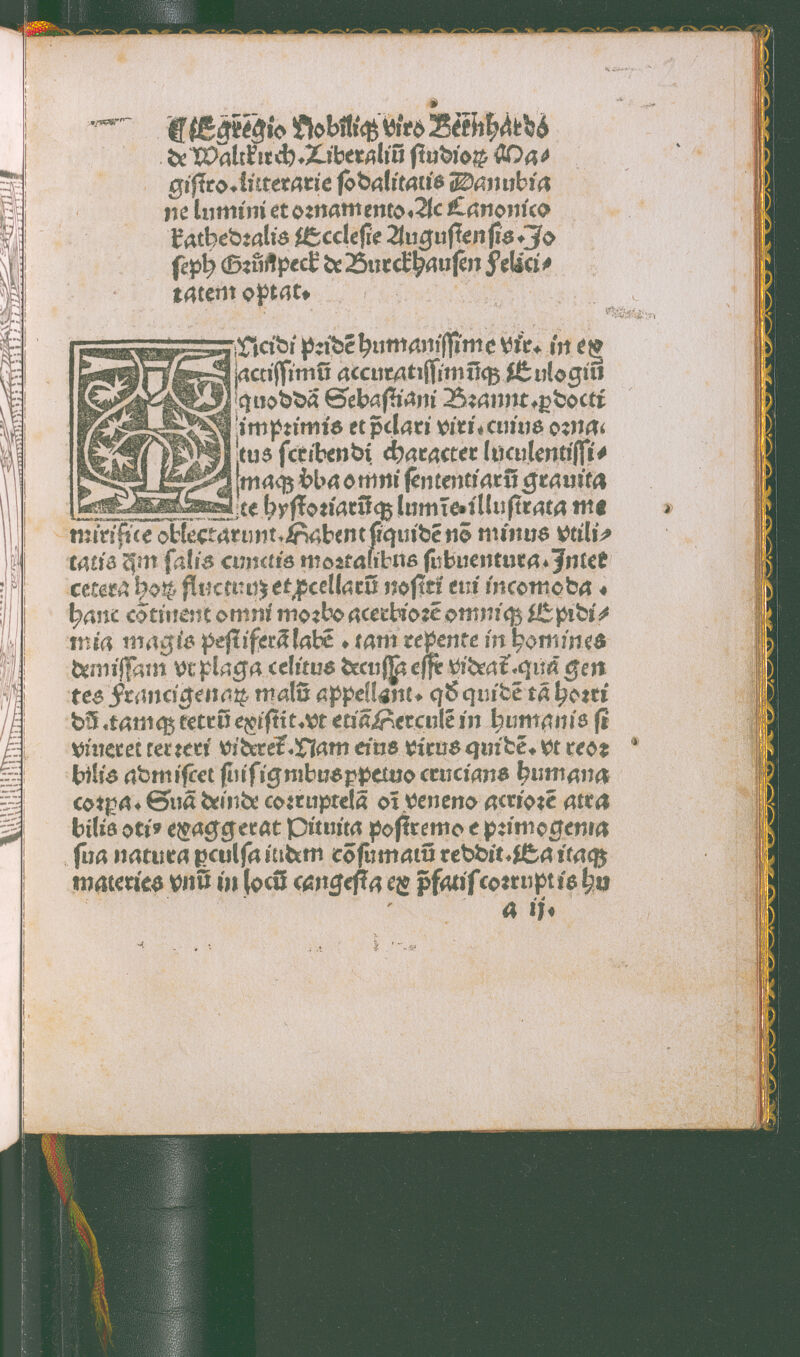 ¶ Egregio Nobiliqꝫ viro Bernhardo
de Waltkirch. Liberaliū studioꝝ Ma⸗
gistro. litterarie sodalitatis Danubia
ne lumini et ornamento. Ac Canonico
kathedralis Ecclesie Augustensis. Jo
seph Grünpeck de Burckhausen Felici⸗
tatem optat.
INcidi pridē humanissime vir. in ex
actissimū accuratissimūqꝫ Eulogiū
quoddā Sebastiani Brannt. ꝑdocti
imprimis et p̄clari viri. cuius orna⸗
tus scribendi character luculentissi⸗
maqꝫ v̄ba omni sententiarū grauita
te hystoriarūqꝫ lumīe. illustrata me
mirifice oblectarunt. Habent siquidē nō minus vtili⸗
tatis q̄m salis cunctis mortalibus subuentura. Inter
cetera hoꝝ fluctuuꝫ et ꝓcellarū nostri eui incomoda .
hanc cōtinent omni morbo acerbiorē omniqꝫ Epidi⸗
mia magis pestiferā labē . tam repente in homines
demissam vt plaga celitus decussa esse videat̄. quā gen
tes Francigenaꝝ malū appellant. qd̄ quidē tā horri
dū .tamqꝫ tetrū existit. vt etiā Herculē in humanis si
viueret terreri videret̄. Nam eius virus quidē. vt reor
bilis admiscet suis ignibus ꝑpetuo crucians humana
corpa. Suā deinde corruptelā oī veneno acriorē atra
bilis otiꝰ exaggerat Pituita postremo e primogenia
sua natura ꝑculsa itidem cōsumatū reddit. Ea itaqꝫ
materies vnū in locū cangesta ex p̄fatis corruptis hu
a ij.